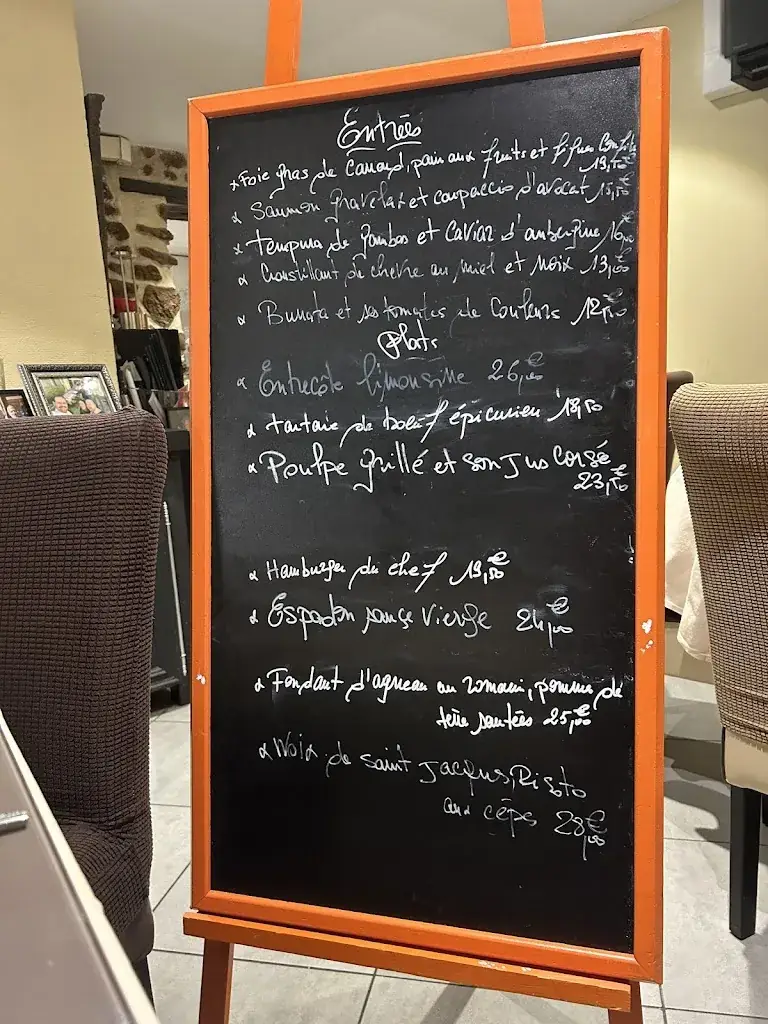 Entrées
Foie gras de Canard, pain aux fruits et figues Confites
19,50€
Saumon gravelax et carpaccio d'avocat 15,50€
tempura de gambas et Caviar d'aubergine 16,00
Croustillant de chèvre au miel et noix 13,00€
Burrata et ses tomates de Couleurs 12,50€
Plats
Entrecôte limousine 26,00€
tartare de boeuf épicurien 18,50
Poulpe grillé et son Jus Corsé
23,50€
Hamburger du chef 19,50€
Espadon sauce Vierge 24,00€
Fondant d'agneau au romarin, pomme de
terre sautées 25,00€
Noix de saint Jacques, Risoto
aux cèps 28,00€